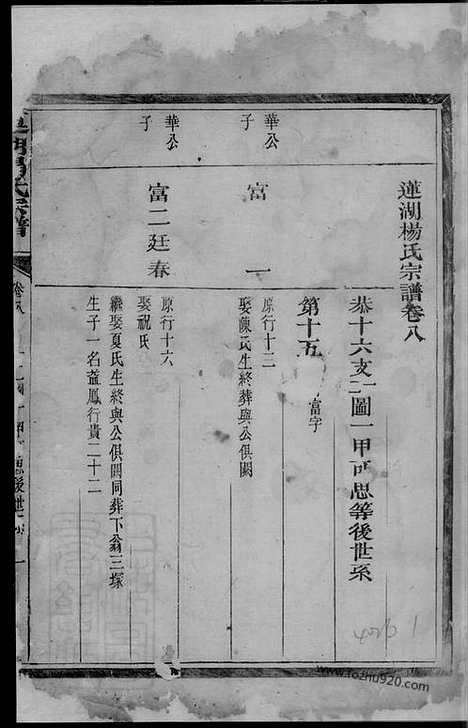 蓮湖楊氏宗譜卷八
恭十六支二圖一甲可思等後世系
第十五 富字
華公子
富一
原行十三
娶陳氏生終葬與公俱闕
華公子
富二廷春
原行十六
娶祝氏
繼娶夏氏生終與公俱闕同葬下翁三塚
生子一名益鳳行貴二十二
氏宗譜
卷八
4026 1
www.fozhu920.com